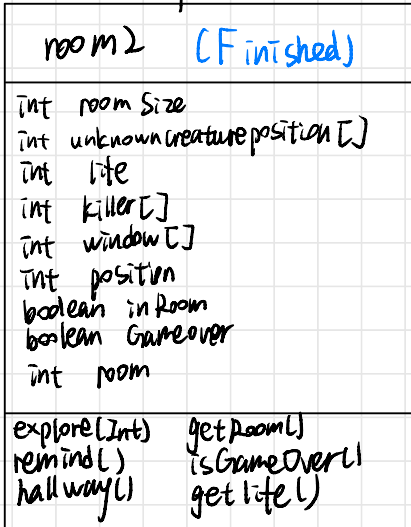 room2 (Finished)
int room Size
int unknowncreatureposition[]
int life
int killer[]
int window[]
int position
boolean inRoom
boolean Gameover
int room
explore(Int) getRoom()
remind() isGameOver()
hallway() getlife()